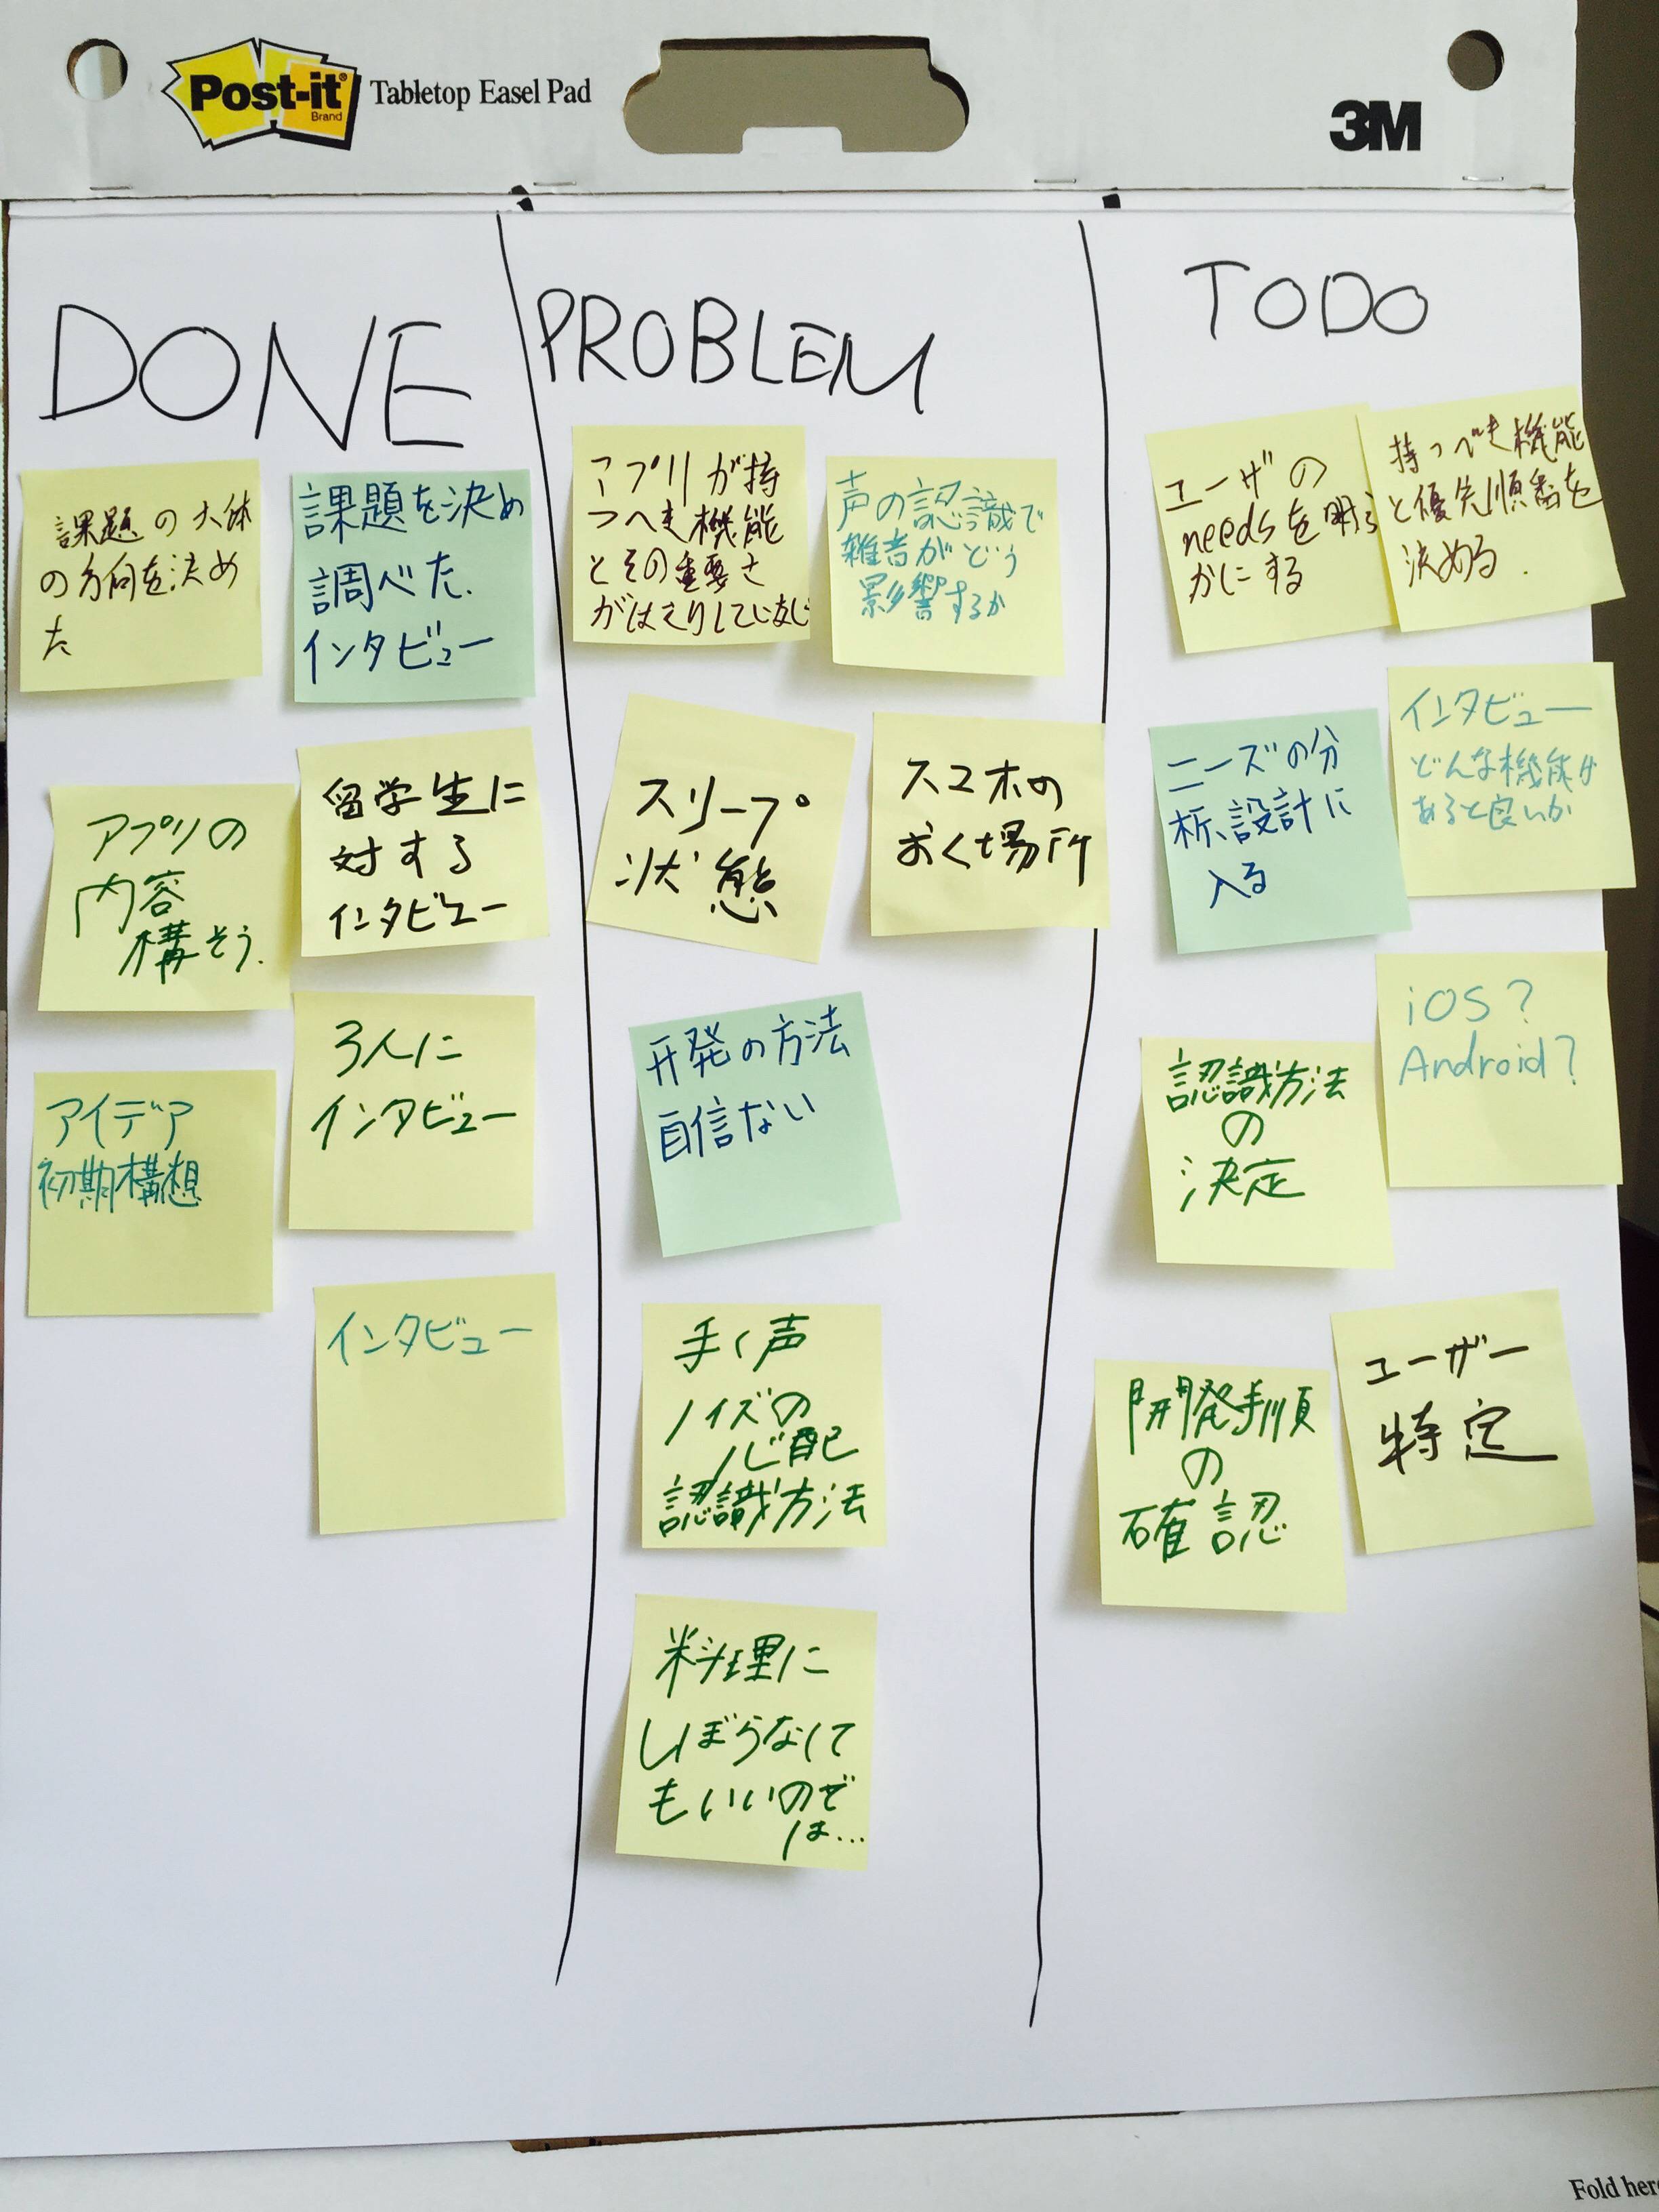 Post-it
Brand
Tabletop Easel Pad
3M
DONE
課題の大体
の方向を決め
た
課題を決め
調べた.
インタビュー
アプリの
内容
構そう.
留学生に
対する
インタビュー
アイデア
初期構想
3人に
インタビュー
インタビュー
PROBLEM
アプリが持
つべき機能
とその重要さ
がはっきりしていない
声の認識で
雑音がどう
影響するか
スリープ
状態
スマホの
おく場所
开発の方法
自信ない
手く声
ノイズの
心配
認識方法
料理に
しぼらなくて
もいいので
は…
TODO
ユーザの
needsを明ら
かにする
持つべき機能
と優先順番を
決める.
ニーズの分
析、設計に
入る
インタビュー
どんな機能が
あると良いか
認識方法
の
決定
iOS?
Android?
開発手順
の
確認
ユーザー
特定
Fold her